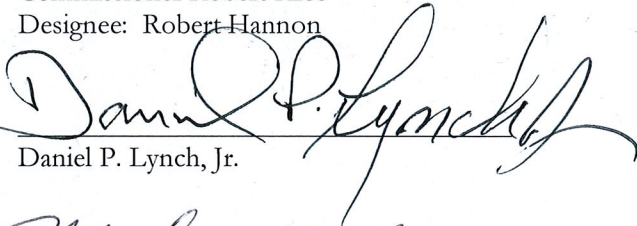 Designee: Robert Hannon
Daniel P. Lynch Jr
Daniel P. Lynch, Jr.